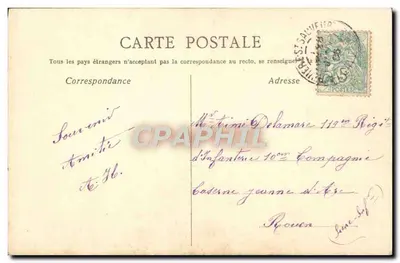 CARTE POSTALE
Tous les pays étrangers n'acceptant pas la correspondance au recto, se renseigner
Correspondance
Adresse
Souvenir
Amitié
A H.
Mr Aimé Delamare 119me Rigit
d'Infanterie 10me Compagnie
Caserne jeanne d'Arc
Rouen
(Seine-Inf)
CPAPHIL